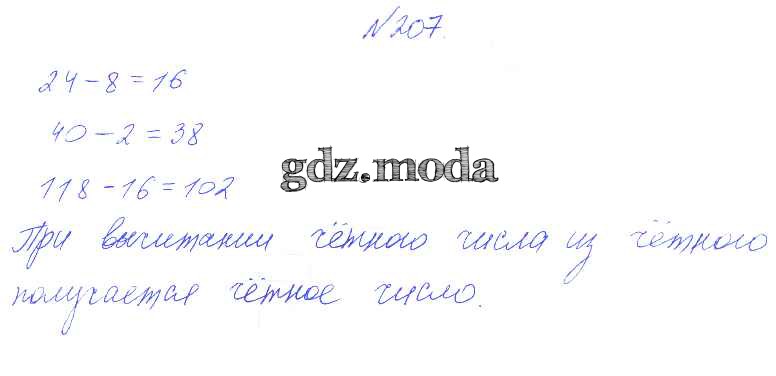 №207.
24-8=16
40-2=38
gdz.moda
118-16=102
При вычитании чётного числа из чётного
получается чётное число.